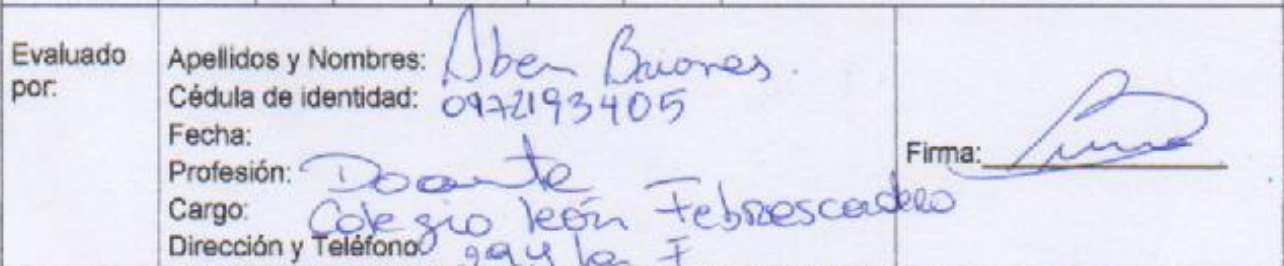 Evaluado
por:
Apellidos y Nombres: Aben Briones.
Cédula de identidad: 0972193405
Fecha:
Profesión: Docente
Cargo: Colegio León Febrescordero
Dirección y Teléfono
Firma: